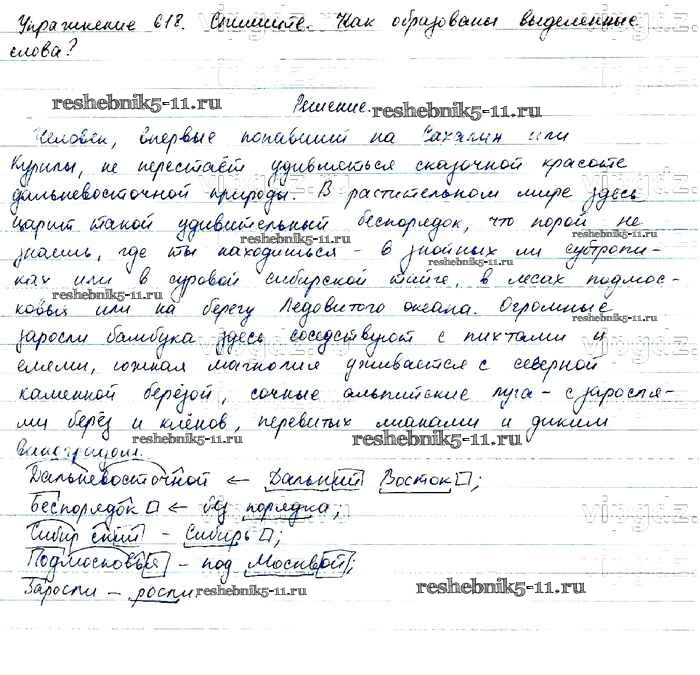 Упражнение 618. Спишите. Как образованы выделенные
слова?
reshebnik5-11.ru
Решение.
reshebnik5-11.ru
Человек, впервые попавший на Сахалин или
Курилы, не перестаёт удивляться сказочной красоте
дальневосточной природы. В растительном мире здесь
царит такой удивительный беспорядок, что порой не
reshebnik5-11.ru
reshebnik5-11.ru
знаешь, где ты находишься - в знойных ли субтропи-
ках или в суровой сибирской тайге, в лесах подмос-
reshebnik5-11.ru
ковья или на берегу Ледовитого океана. Огромные
reshebnik5-11.ru
заросли бамбука здесь соседствуют с пихтами и
елями, южная магнолия уживается с северной
каменной берёзой, сочные альпийские луга - с заросля-
ми берёз и клёнов, перевитых лианами и диким
reshebnik5-11.ru
reshebnik5-11.ru
виноградом.
Дальневосточной ← Дальний Восток;
Беспорядок ← без порядка;
Сибирский - Сибирь;
Подмосковья - под Москвой;
Заросли - росли
reshebnik5-11.ru
reshebnik5-11.ru